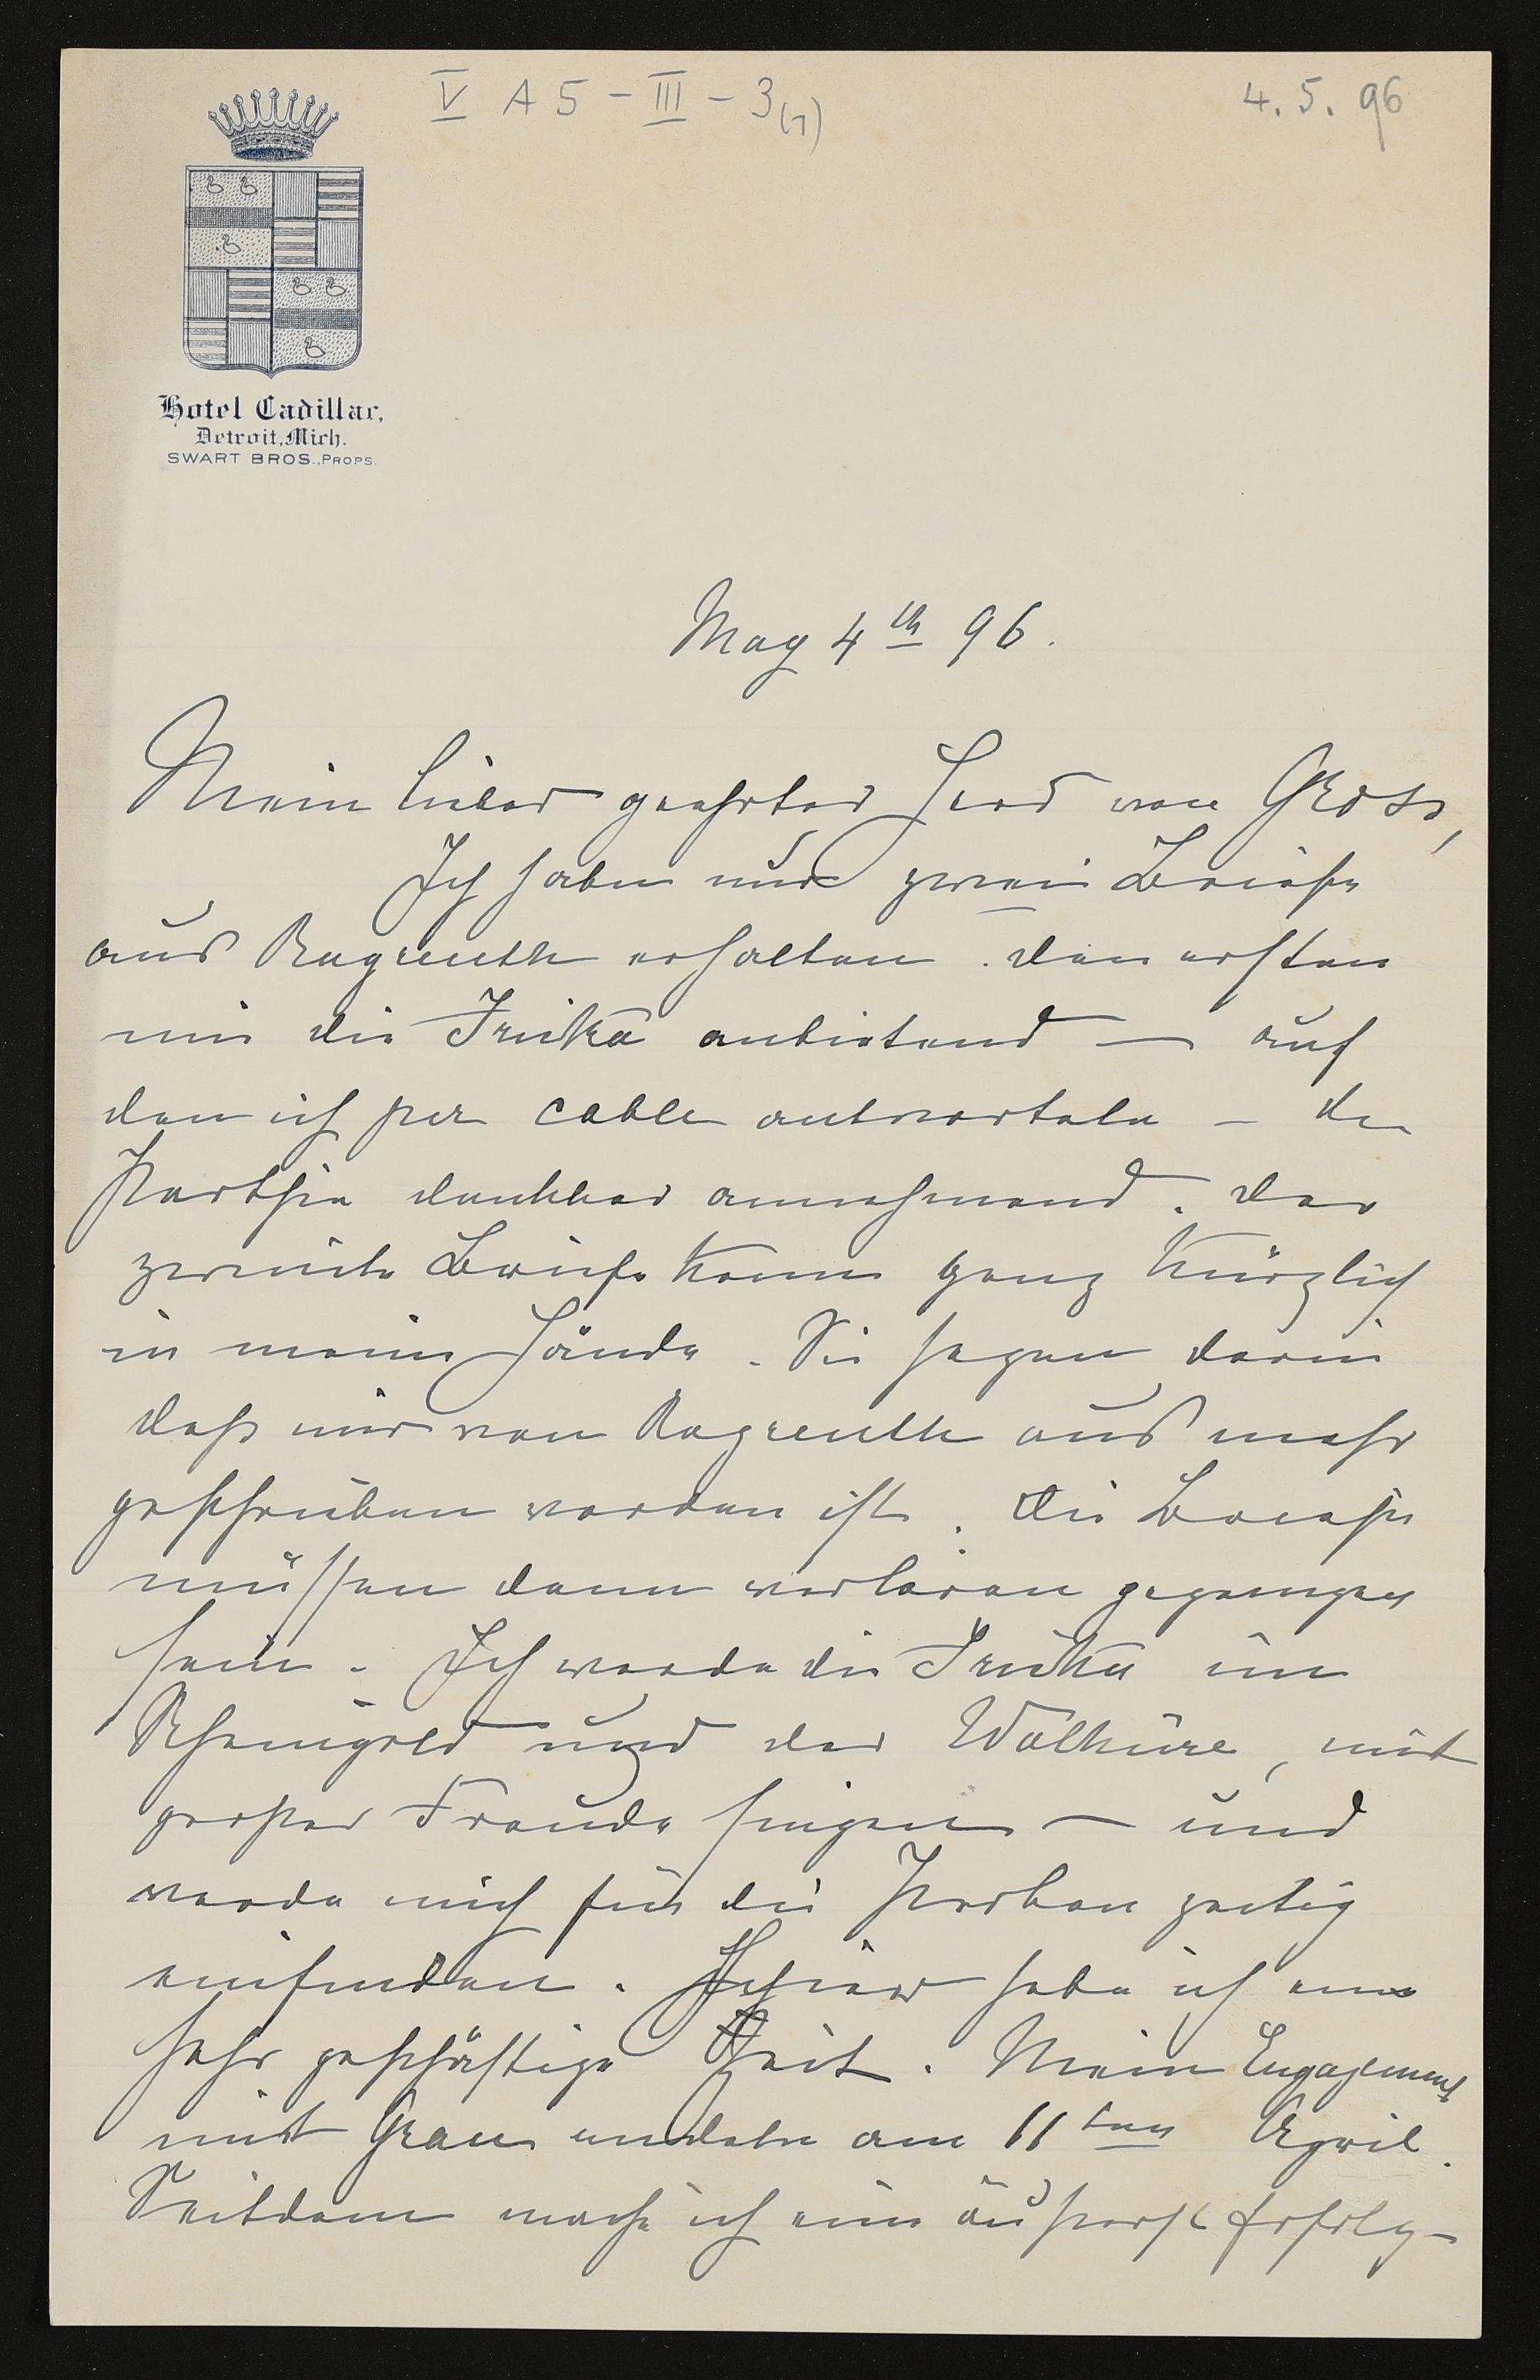 V A 5 - III - 3(1)
4. 5. 96
Hotel Cadillac,
Detroit, Mich.
SWART BROS., PROPS.
May 4th 96.
Mein lieber geehrter Herr von Gross,
Ich habe nur zwei Briefe
aus Bayreuth erhalten. Den ersten
mir die Fricka anbietend — auf
den ich per cable antwortete – die
Parthie dankbar annehmend. Der
zweite Briefe kam ganz kürzlich
in meine Hände. Sie sagen darin
daß mir von Bayreuth aus mehr
geschrieben worden ist. Die Briefe
müssen dann verloren gegangen
sein. Ich werde die Fricka im
Rheingold und der Walküre, mit
großer Freude singen — und
werde mich für die Proben zeitig
einfinden. Hier habe ich eine
sehr geschäftige Zeit. Mein Engagement
mit Grau endete am 11ten April.
Seitdem mache ich eine äußerst erfolg-